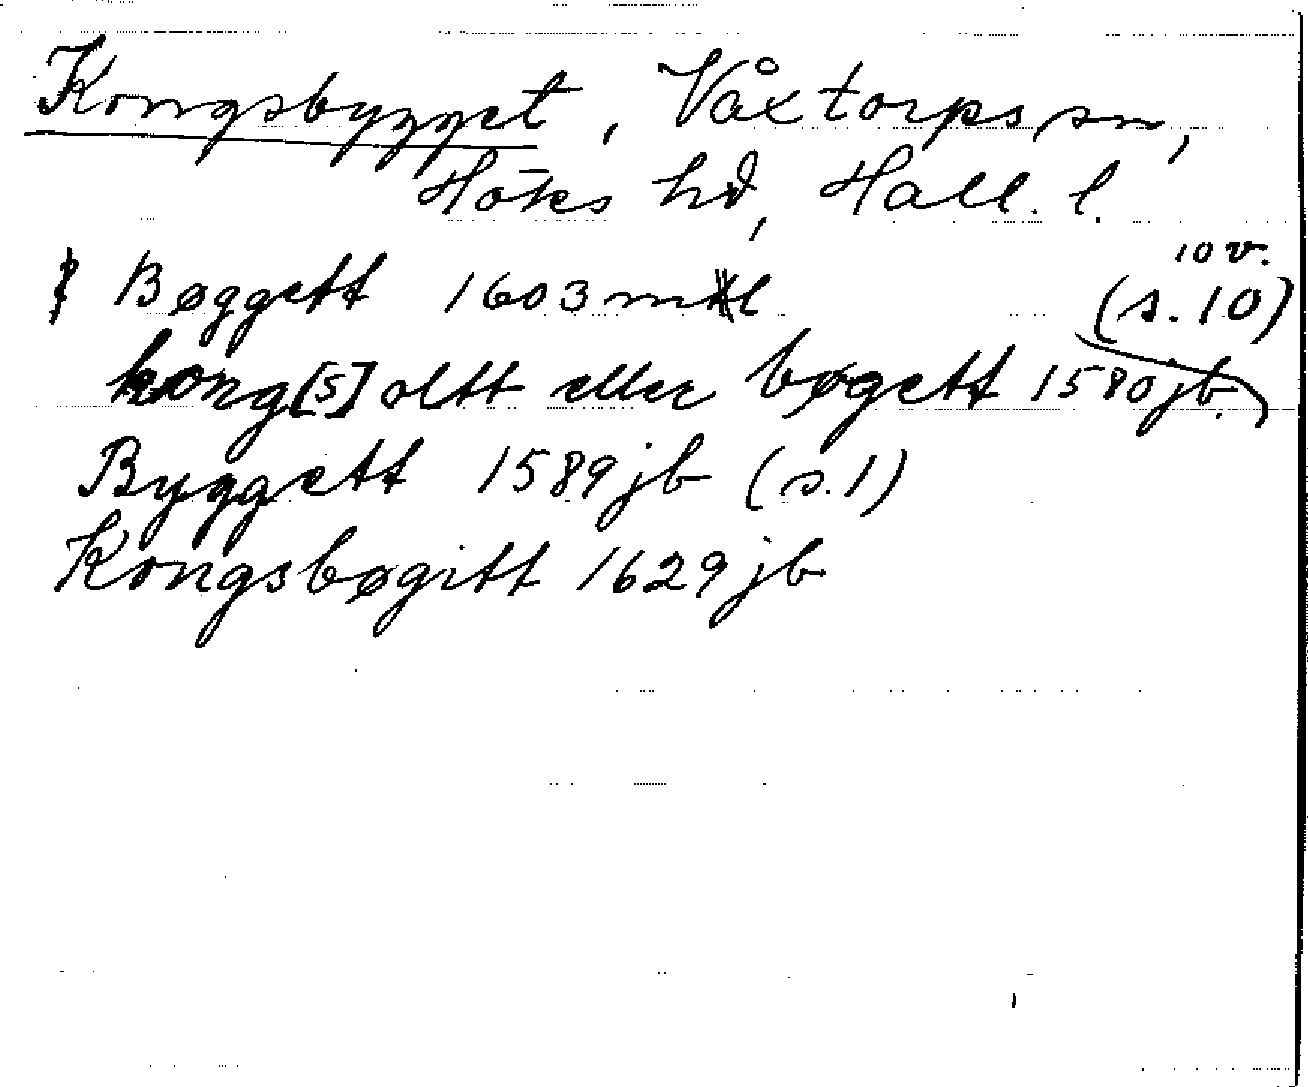 Kongsbygget, Våxtorps sn,
Höks hd, Hall. l.
10 v.
Bøggett 1603 mtl (s. 10)
kong[s] oltt eller bøgett 1580 jb.
Byggett 1589 jb (s. 1)
Kongsbøgitt 1629 jb